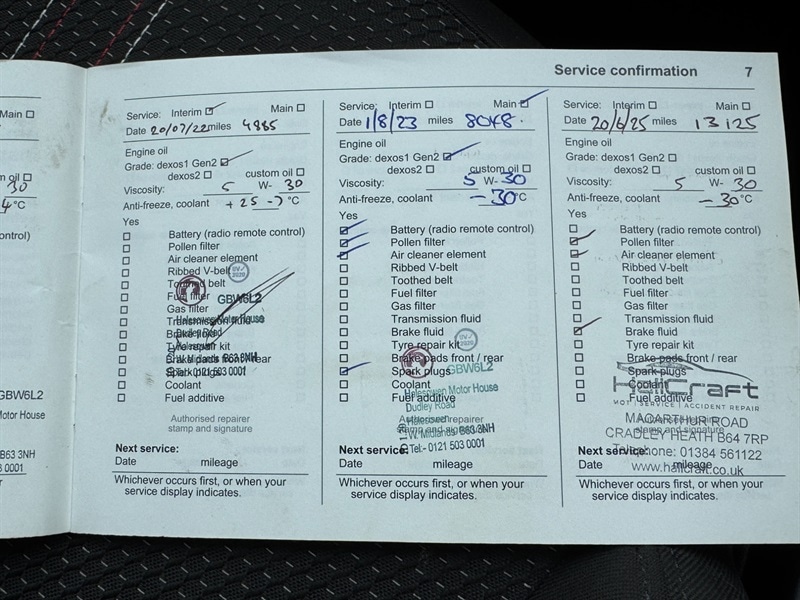 Service confirmation 7
Main
oil
30
4 °C
ontrol)
GBW6L2
Motor House
B63 3NH
3 0001
Service: Interim Main
Date 20/07/22 miles 4985
Engine oil
Grade: dexos1 Gen2
dexos2 custom oil
Viscosity: 5 W- 30
Anti-freeze, coolant +25 -7 °C
Yes
Battery (radio remote control)
Pollen filter
Air cleaner element
Ribbed V-belt
Toothed belt
Fuel filter
Gas filter
Transmission fluid
Brake fluid
Tyre repair kit
Brake pads front / rear
Spark plugs
Coolant
Fuel additive
GBW6L2
Halesowen Motor House
Dudley Road
Halesowen
W. Midlands B63 3NH
Tel:- 0121 503 0001
Authorised repairer
stamp and signature
Next service:
Date mileage
Whichever occurs first, or when your
service display indicates.
Service: Interim Main
Date 1/8/23 miles 8048.
Engine oil
Grade: dexos1 Gen2
dexos2 custom oil
Viscosity: 5 W- 30
Anti-freeze, coolant -30°C
Yes
Battery (radio remote control)
Pollen filter
Air cleaner element
Ribbed V-belt
Toothed belt
Fuel filter
Gas filter
Transmission fluid
Brake fluid
Tyre repair kit
Brake pads front / rear
Spark plugs
Coolant
Fuel additive
GBW6L2
Halesowen Motor House
Dudley Road
Halesowen
W. Midlands B63 3NH
Tel:- 0121 503 0001
Authorised repairer
stamp and signature
Next service:
Date mileage
Whichever occurs first, or when your
service display indicates.
Service: Interim Main
Date 20/6/25 miles 13125
Engine oil
Grade: dexos1 Gen2
dexos2 custom oil
Viscosity: 5 W- 30
Anti-freeze, coolant -30°C
Yes
Battery (radio remote control)
Pollen filter
Air cleaner element
Ribbed V-belt
Toothed belt
Fuel filter
Gas filter
Transmission fluid
Brake fluid
Tyre repair kit
Brake pads front / rear
Spark plugs
Coolant
Fuel additive
HaliCraft
MOT | SERVICE | ACCIDENT REPAIR
MACARTHUR ROAD
CRADLEY HEATH B64 7RP
Telephone: 01384 561122
www.halicraft.co.uk
Authorised repairer
stamp and signature
Next service:
Date mileage
Whichever occurs first, or when your
service display indicates.